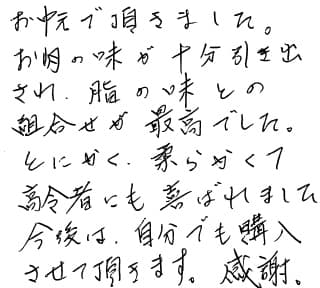 お中元で頂きました。
お肉の味が十分引き出
され、脂の味との
組合せが最高でした。
とにかく、柔らかくて
高令者にも喜ばれました
今後は、自分でも購入
させて頂きます。感謝。